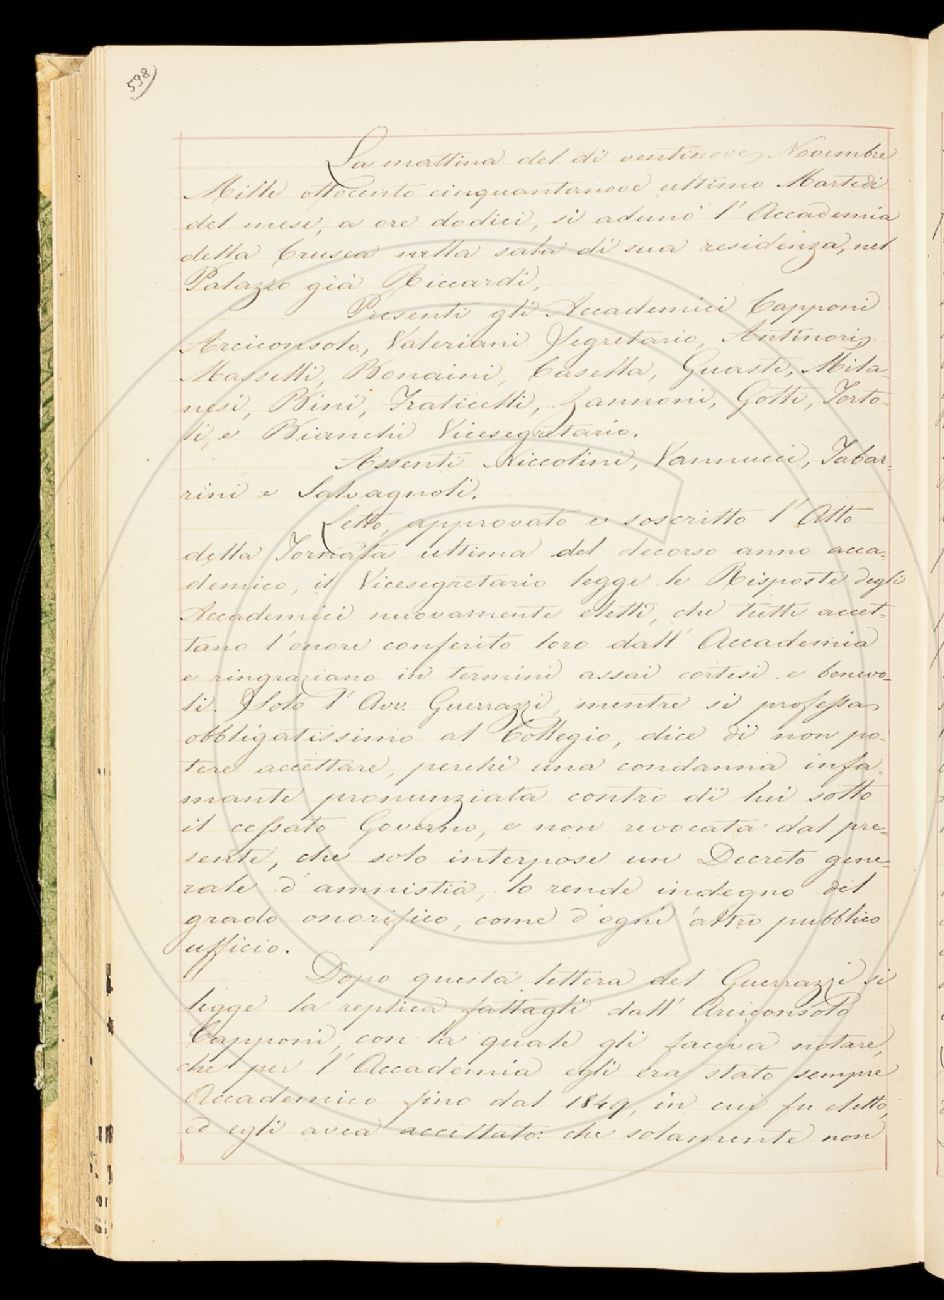 598
La mattina del dì ventinove Novembre
Mille ottocento cinquantanove ultimo Martedì
del mese, a ore dodici, si adunò l'Accademia
della Crusca nella sala di sua residenza, nel
Palazzo già Riccardi,
Presenti gli Accademici Capponi
Arciconsolo, Valeriani Segretario, Antinori,
Masselli, Bonaini, Casella, Guasti, Mila-
nesi, Bini, Fraticelli, Zannoni, Gotti, Torto-
li, e Bianchi Vicesegretario.
Assenti Niccolini, Vannucci, Tabar-
rini e Salvagnoli.
Letto, approvato e soscritto l'Atto
della Tornata ultima del decorso anno acca-
demico, il Vicesegretario legge le Risposte degli
Accademici nuovamente eletti, che tutti accet-
tano l'onore conferito loro dall'Accademia
e ringraziano in termini assai cortesi e benevo-
li. Solo l'Avv. Guerrazzi, mentre si professa
obbligatissimo al Collegio, dice di non po-
tere accettare, perchè una condanna infa-
mante pronunziata contro di lui sotto
il cessato Governo, e non revocata dal pre-
sente, che solo interpose un Decreto gene-
rale d'amnistia, lo rende indegno del
grado onorifico, come d'ogni altro pubblico
ufficio.
Dopo questa lettera del Guerrazzi si
legge la replica fattagli dall'Arciconsolo
Capponi, con la quale gli faceva notare,
che per l'Accademia egli era stato sempre
Accademico fino dal 1849, in cui fu eletto,
ed egli avea accettato: che solamente non